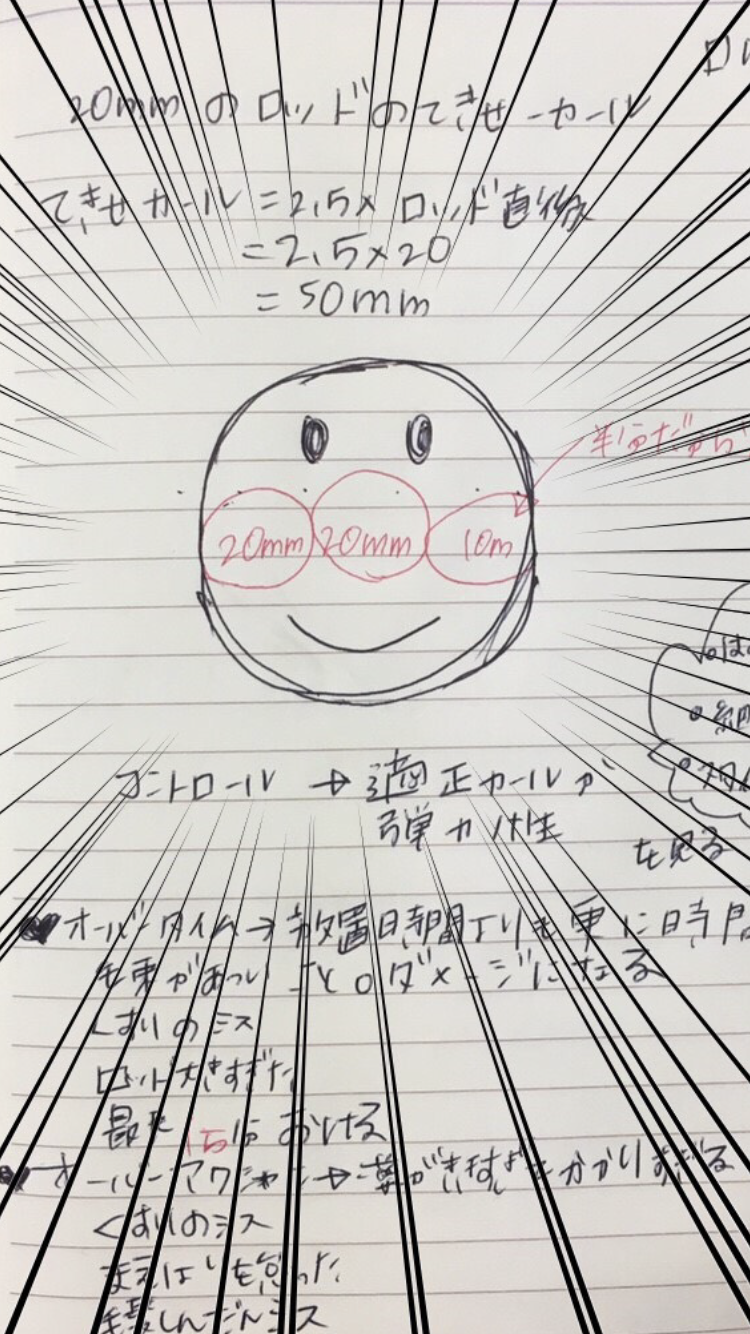 20mmのロッドのてきせーカール
てきせカール=2.5×ロッド直径
=2.5×20
=50mm
半分だから
20mm 20mm 10m
コントロール → 適正カールが
弾力性
を見る
オーバータイム→放置時間よりも更に時間
毛束があつい ことロダメージになる
くすりのミス
ロッド大きすぎた
最大 15分 おける
オーバーアクション→薬がききすぎをかかりすぎる
くすりのミス
まえはりを怠った
毛髪しんだんミス